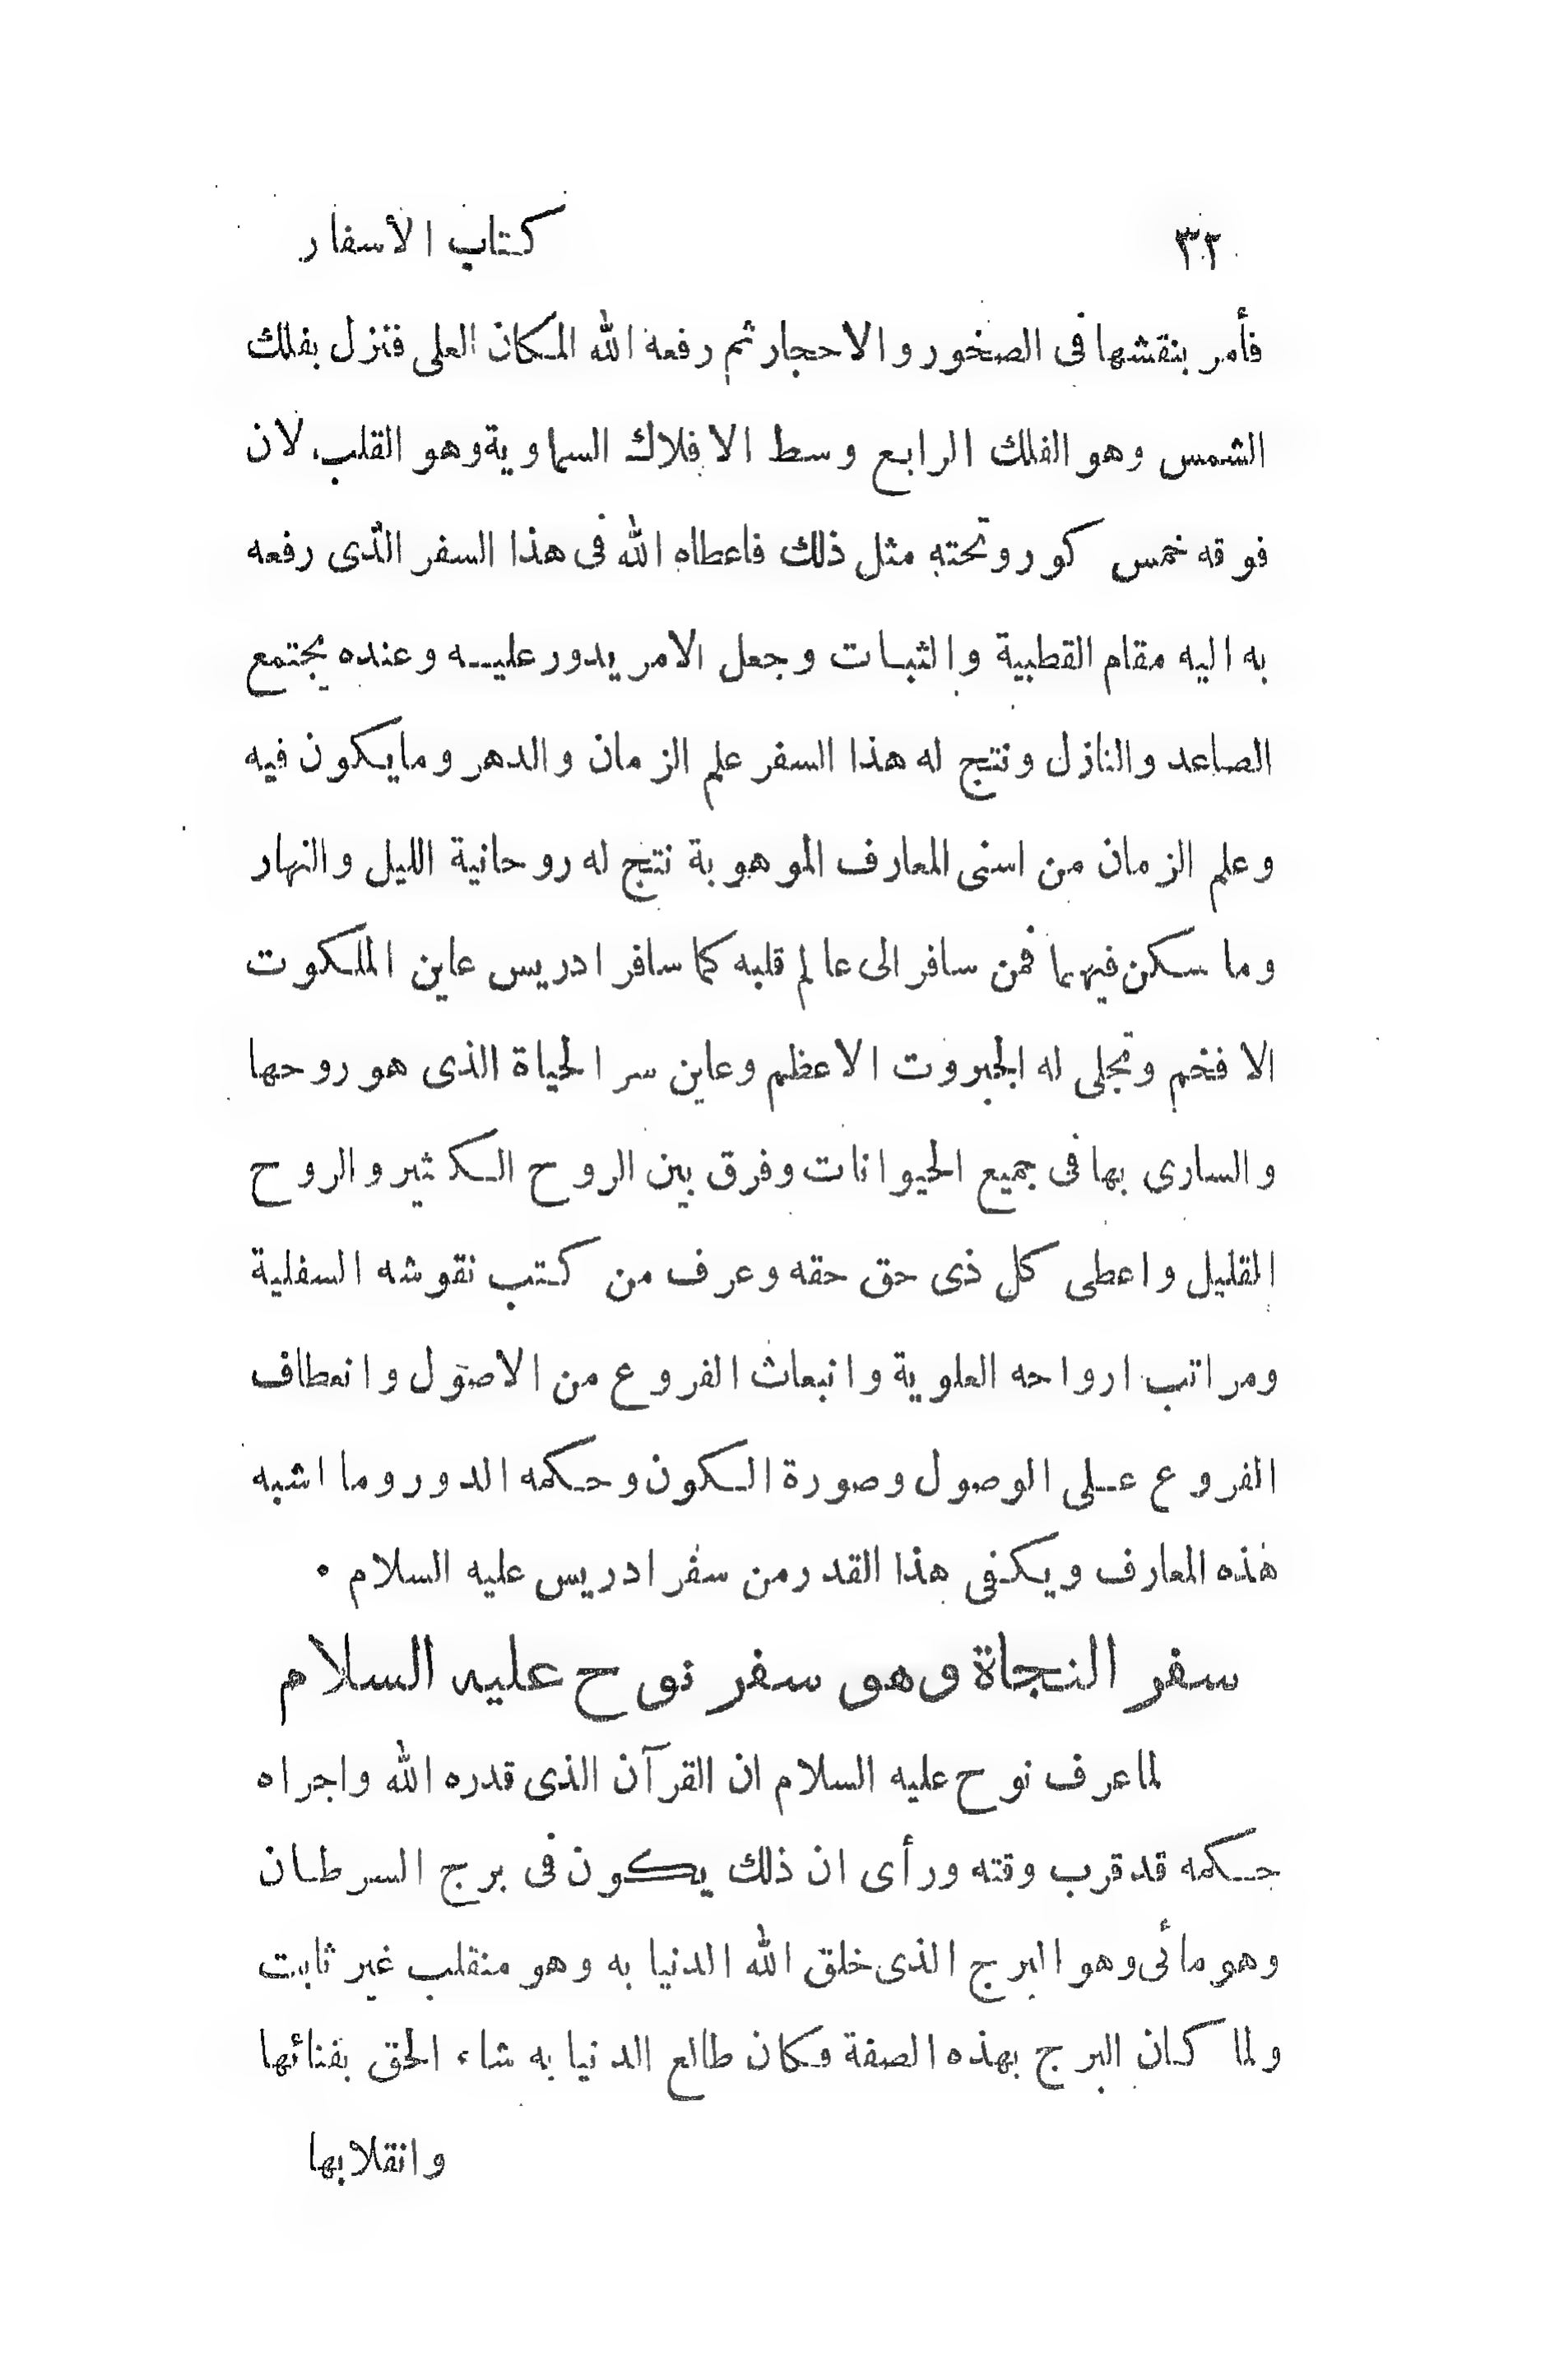 ٣٢ كتاب الأسفار
فأمر بنقشها فى الصخور والاحجار ثم رفعه الله المكان العلى فنزل بفلك
الشمس وهو الفلك الرابع وسط الافلاك السماوية وهو القلب لان
فوقه خمس كور وتحته مثل ذلك فاعطاه الله فى هذا السفر الذى رفعه
به اليه مقام القطبية والثبات وجعل الامر يدور عليه وعنده يجتمع
الصاعد والنازل ونتج له هذا السفر علم الزمان والدهر وما يكون فيه
وعلم الزمان من اسنى المعارف الموهوبة نتج له روحانية الليل والنهار
وما سكن فيهما فمن سافر الى عالم قلبه كما سافر ادريس عاين الملكوت
الافخم وتجلى له الجبروت الاعظم وعاين سر الحياة الذى هو روحها
والسارى بها فى جميع الحيوانات وفرق بين الروح الكثير والروح
القليل واعطى كل ذى حق حقه وعرف من كتب نقوشه السفلية
ومراتب ارواحه العلوية وانبعاث الفروع من الاصول وانعطاف
الفروع على الوصول وصورة الكون وحكمه الدور وما اشبه
هذه المعارف ويكفى هذا القدر من سفر ادريس عليه السلام ٠
سفر النجاة وهو سفر نوح عليه السلام
لما عرف نوح عليه السلام ان القرآن الذى قدره الله واجراه
حكمه قد قرب وقته ورأى ان ذلك يكون فى برج السرطان
وهو مأئى وهو البرج الذى خلق الله الدنيا به وهو منقلب غير ثابت
ولما كان البرج بهذه الصفة وكان طالع الدنيا به شاء الحق بفنائها
وانقلابها